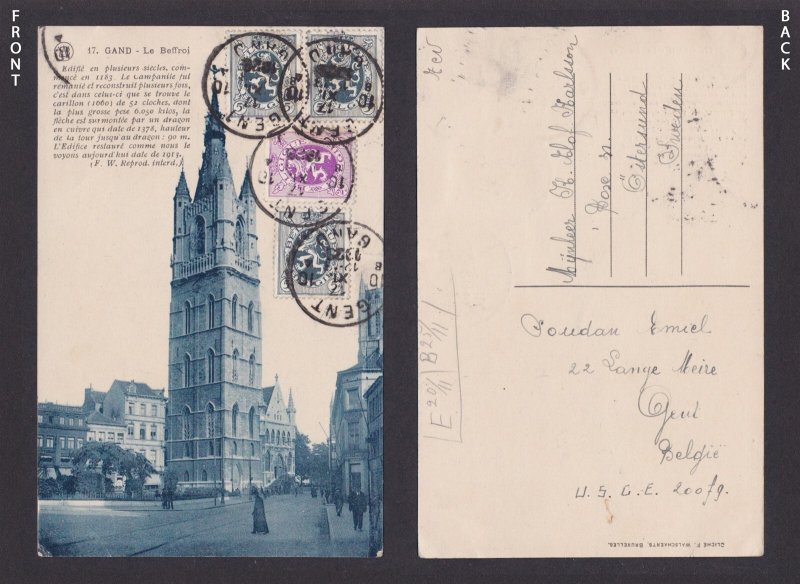 FRONT
BACK
17. GAND - Le Beffroi
Edifié en plusieurs siècles, com-
mencé en 1183. Le Campanile fut
remanié et reconstruit plusieurs fois,
c'est dans celui-ci que se trouve le
carillon (1660) de 52 cloches, dont
la plus grosse pèse 6.050 kilos, la
flèche est surmontée par un dragon
en cuivre qui date de 1378, hauteur
de la tour jusqu'au dragon: 90 m.
L'Edifice restauré comme nous le
voyons aujourd'hui date de 1913.
(F. W. Reprod. interd.)
GENT
GAND
10
GENT
10
GENT
10
17
XI
GENT
GAND
Mijnheer K. Olof Karlsson
Boxe 31
Östersund
Sweden
E 20/11 B 25/11
Poudan Emiel
22 Lange Meire
Gent
België
U. S. G. E. 20079.
CLICHÉ F. WALSCHAERTS, BRUXELLES.